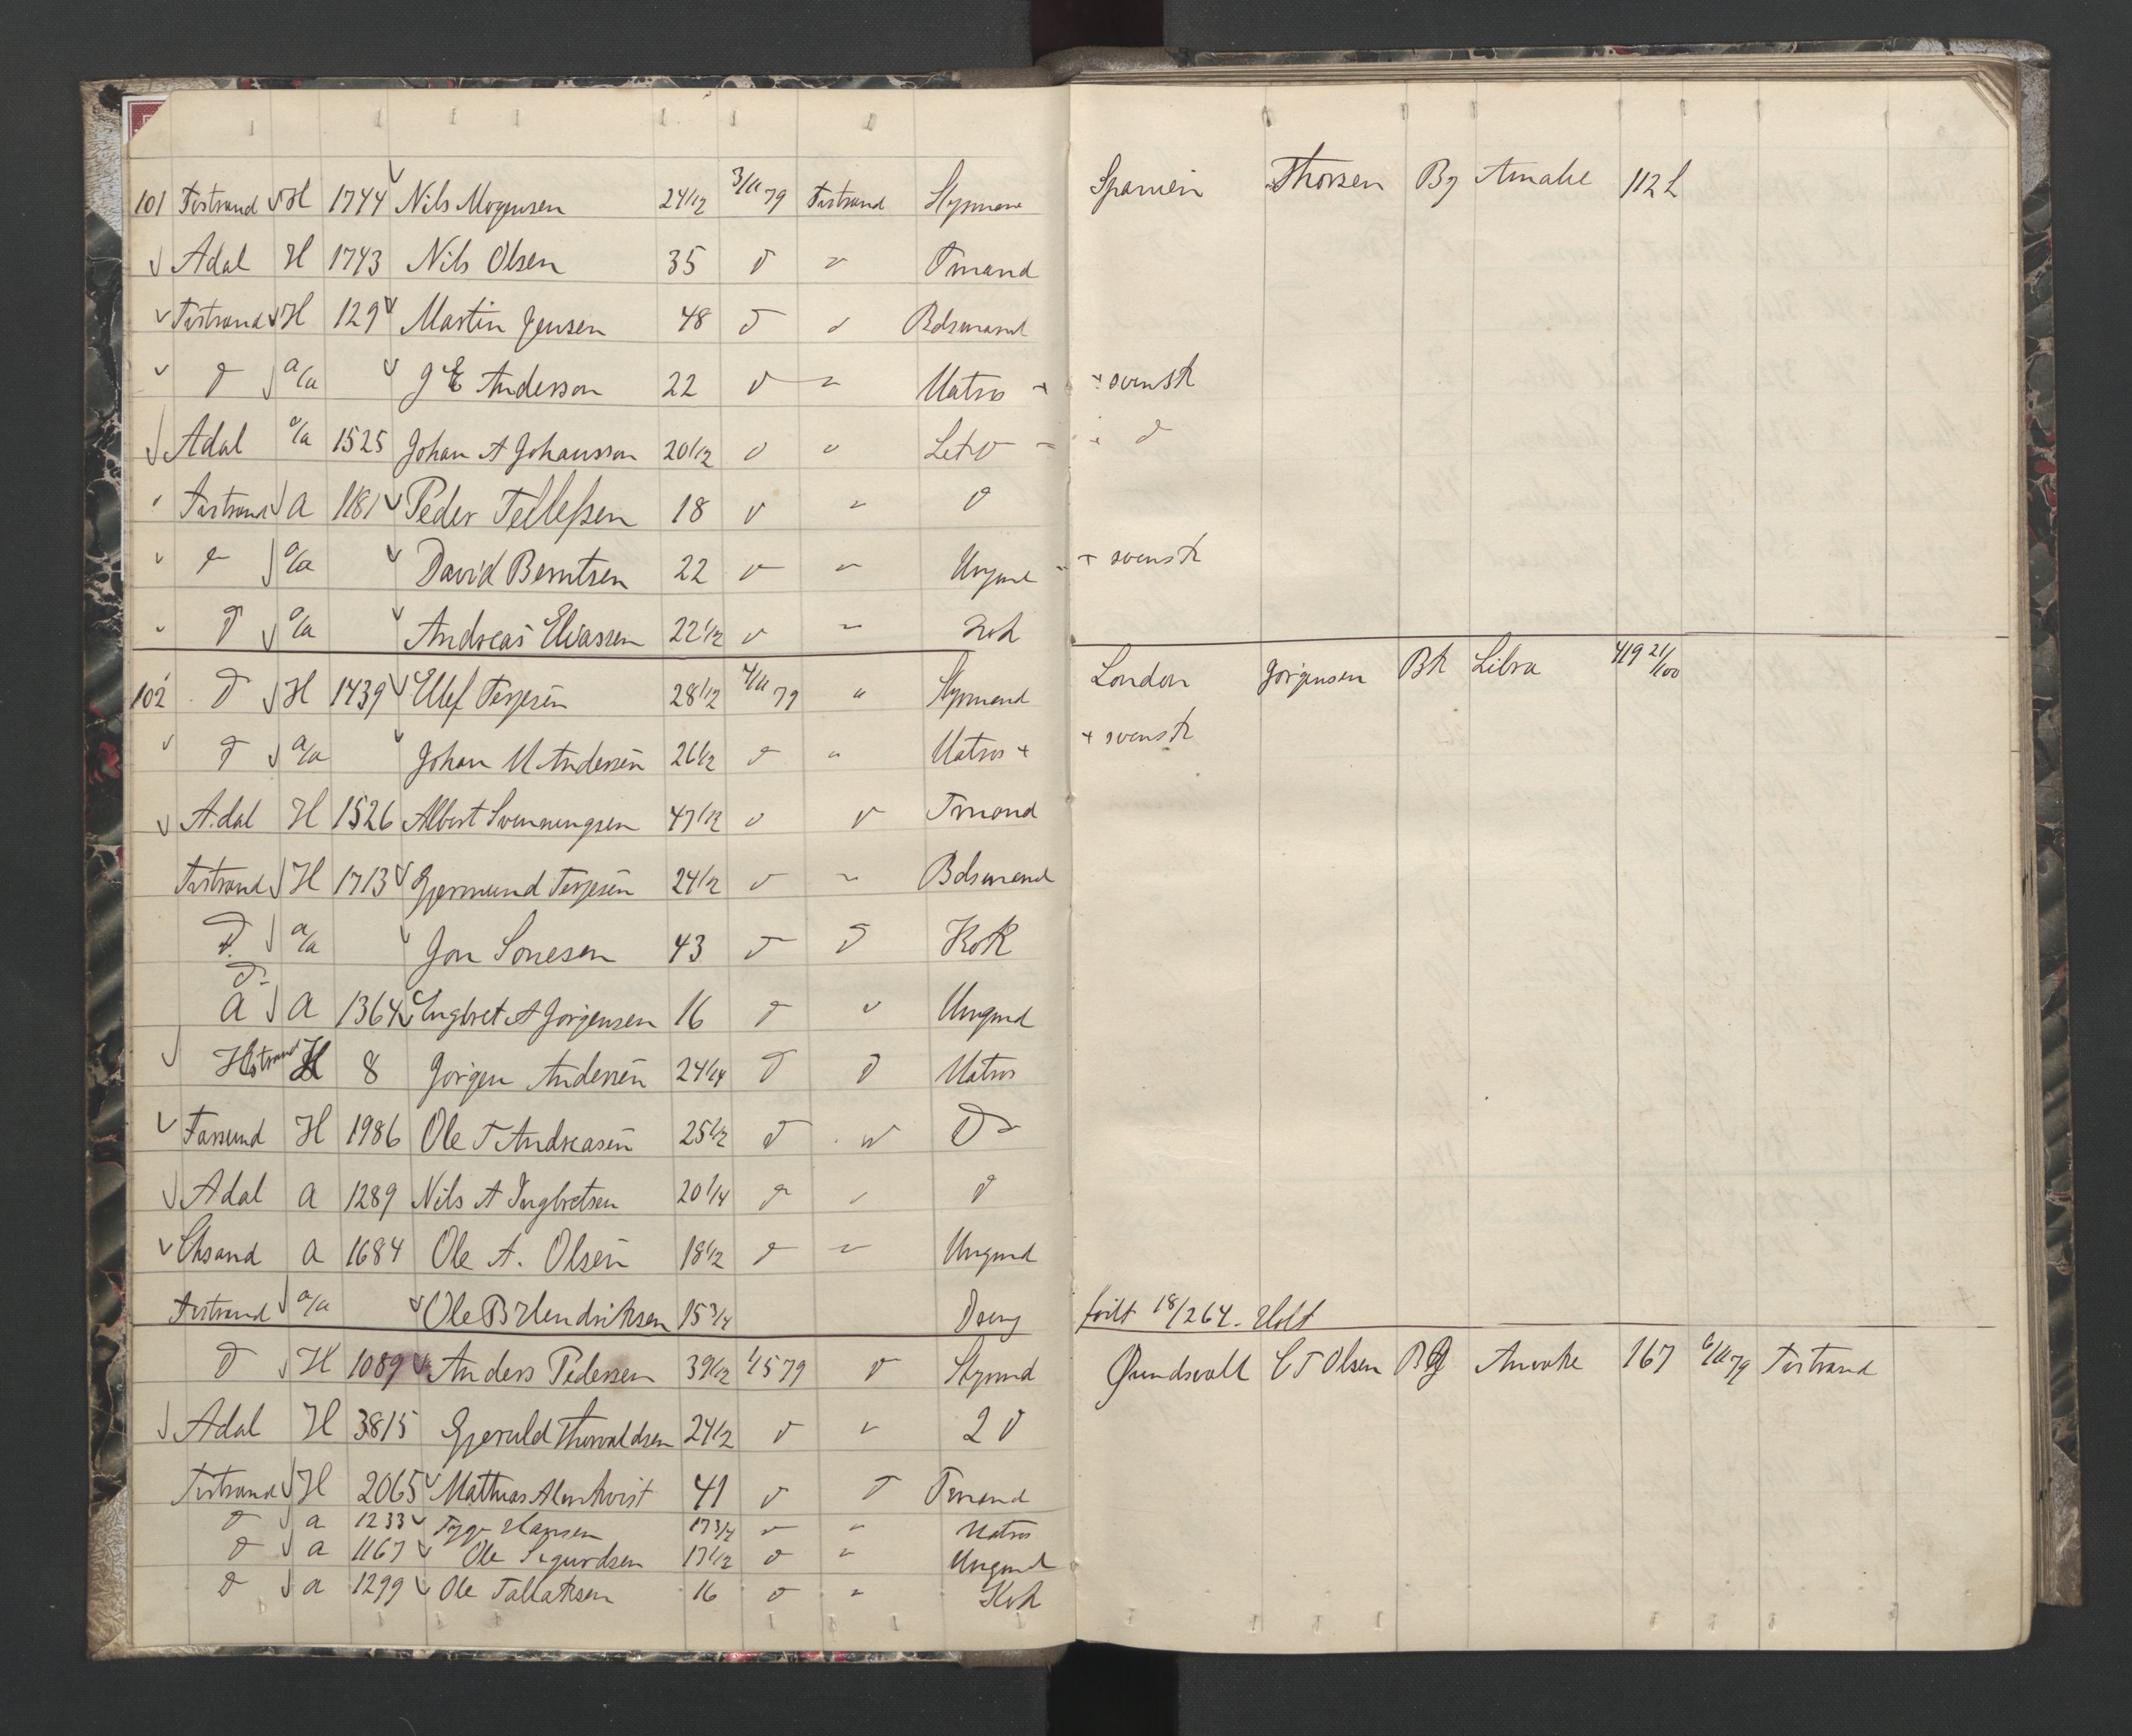 101 Tvstrand H 1744 Nils Mogensen 24 1/2 3/11 79 Tvstrand Stymann Spanien Thorsen Bg Amalie 112 L
Adal H 1743 Nils Olsen 35 d " Tmand
Tvstrand H 129 Martin Jensen 48 d " Bdsmand
d a/a J E Anderson 22 d " Matros + + svensk
Adal a/a 1525 Johan A Johansson 20 1/2 d " Letv + d
Tvstrand a 1181 Peder Tellefsen 18 d " d
d a/a David Berntsen 22 d " Ungmd + + svensk
d a/a Andreas Eliassen 22 1/2 d " Kok
102 d H 1439 Ellef Terjesen 28 1/2 4/11 79 " Stymand London Jørgensen Bk Libra 419 21/100
d a/a Johan M Andersen 26 1/2 d " Matros + + svensk
Adal H 1526 Albert Svenningsen 47 1/2 d d Tmand
Tvstrand H 1713 Gjermund Terjesen 24 1/2 d " Bdsmand
d a/a Jon Sonesen 43 d d Kok
d a 1364 Engbret A Jørgensen 16 d " Ungmd
H 8 Jørgen Andersen 24 1/4 d d Matros
Farsund H 1986 Ole T Andreasen 25 1/2 d " d
Adal a 1289 Nils A Ingbretsen 20 1/4 d " d
Chsand a 1684 Ole A. Olsen 18 1/2 d " Ungmd
Tvstrand a/a Ole B Hendriksen 15 3/4 Dreng født 18/2 64. Holt
d H 1089 Anders Pedersen 39 1/2 79 d Stymd Grundsvall C T Olsen Bg Anvoke 167 6/11 79 Tvstrand
Adal H 3815 Gjeruld Thorvaldsen 24 1/2 d " 2 d
Tvstrand H 2065 Mathias Almkvist 41 d d Tmand
d a 1233 Hansen 17 3/4 " " Matros
d a 1167 Ole Sigurdsen 17 1/2 d " Ungmd
d a 1299 Ole Tallaksen 16 d " Kok